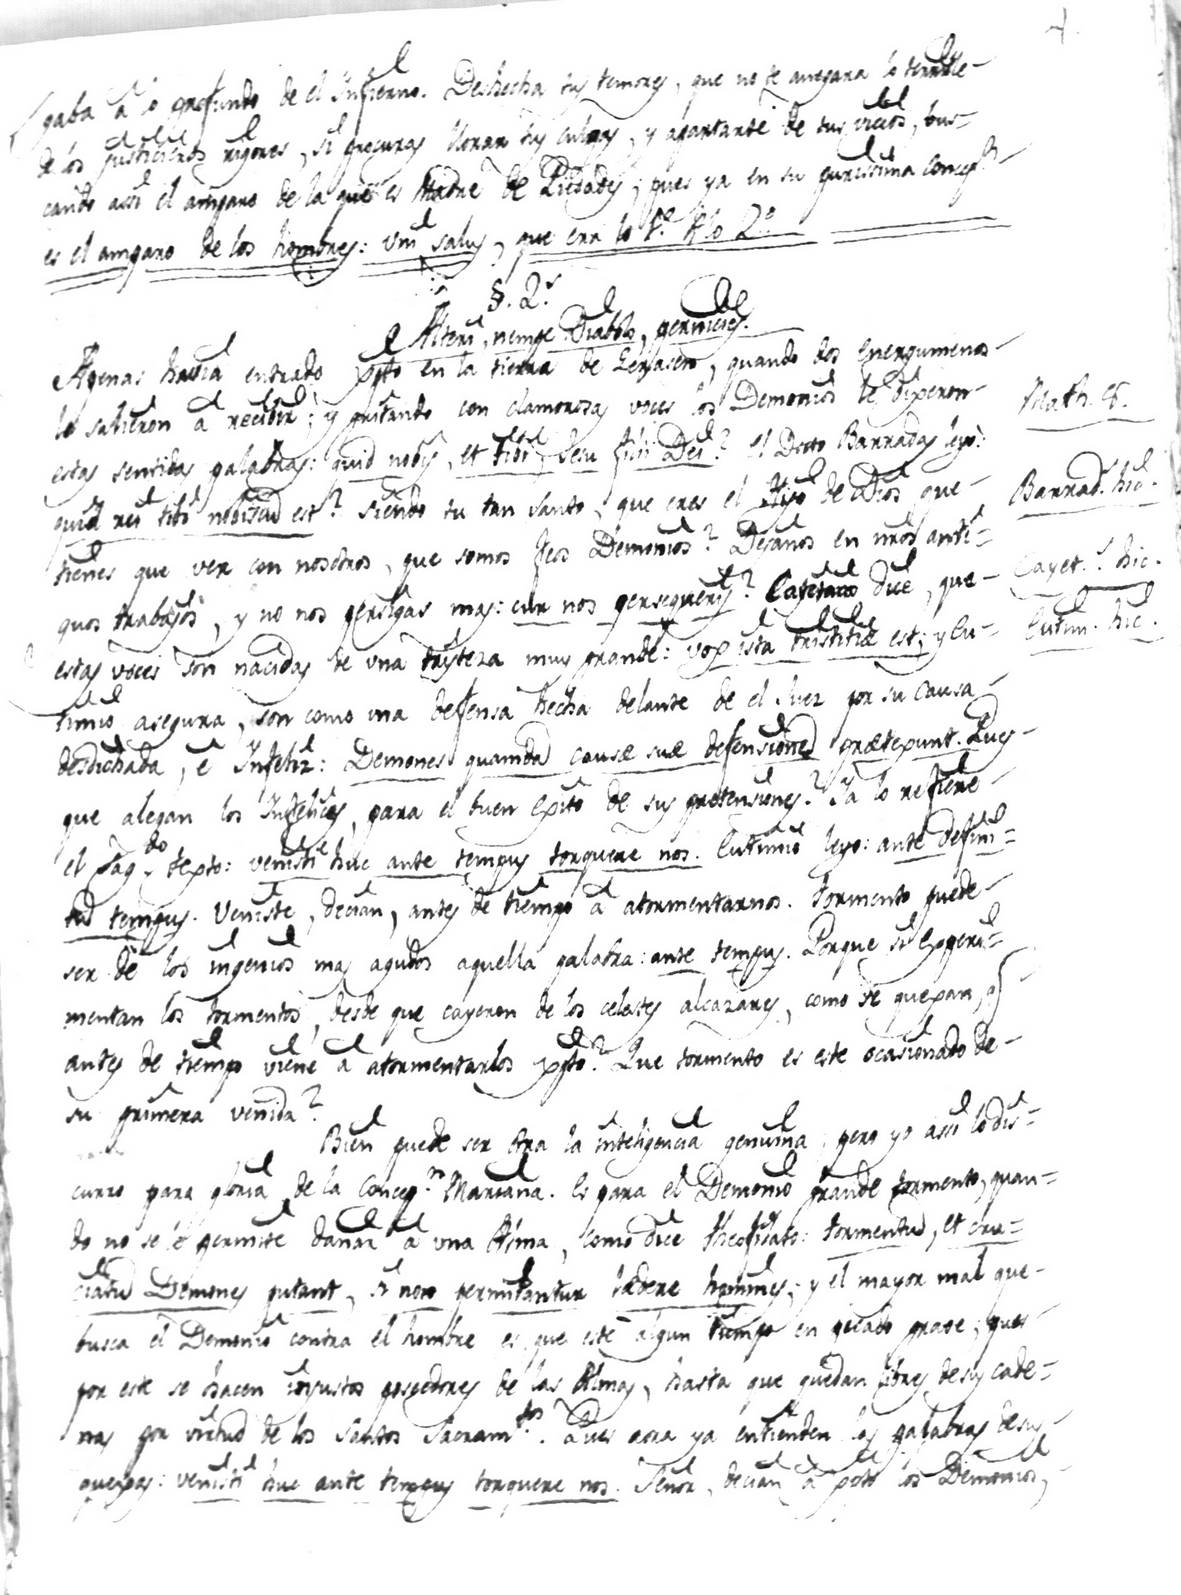 4.
gaba à lo profundo de el Infierno. Deshecha tus temores, que no te amegara lo terrible
de los justicieros rigores, si procuras llorar tus culpas, y apartarte de tus vicios, bus-
cando assi el amparo de la que es Madre de Piedades; pues ya en su purissima Concepn.
es el amparo de los hombres: Uni salus, que era lo 1º. A lo 2º.
§. 2º.
Alteri, nempe Diabolo, pernicies.
Apenas havia entrado Xpto en la tierra de Gerasenos, quando dos energumenos
le salieron à recibir; y gritando con clamorosas voces los Demonios le dixeron
estas sentidas palabras: quid nobis, et tibi, Jesu fili Dei? El Docto Barradas leyo:
quid rei tibi nobiscum est? Siendo tu tan santo, que eres el Hijo de Dios que
tienes que ver con nosotros, que somos feos Demonios? Dejanos en nros anti-
guos trabajos, y no nos persigas mas: cur nos persequeris? Cayetano dice, que
estas voces son nacidas de una tristeza muy grande: vox ista tristitiæ est; y Eu-
timio asegura, son como una defensa hecha delante de el Juez por su causa
desdichada, e Infeliz: Demones quamdã causæ suæ defensionẽ prætexunt. Pues
que alegan los Infelices, para el buen exito de sus pretensiones? Ya lo refiere
el Sagdo. texto: venisti huc ante tempus torquere nos. Eutimio leyo: ante defini-
tũ tempus. Veniste, decian, antes de tiempo à atormentarnos. Tormento puede
ser de los ingenios mas agudos aquella palabra: ante tempus. Porque si experi-
mentan los tormentos, desde que cayeron de los celestes alcazares, como se quexan, q
antes de tiempo viene à atormentarlos Xpto? Que tormento es este ocasionado de
su primera venida?
Bien puede ser otra la inteligencia genuina; pero yo assi lo dis-
curro para gloria de la Concepn. Mariana. Es para el Demonio grande tormento, quan-
do no se le permite dañar à una Alma, como dice Theofilato: tormentũ, et cru-
ciatũ Demones putant, si non permittantur lædere homines; y el mayor mal que
busca el Demonio contra el hombre es, que este algun tiempo en pecado grave; pues
por este se hacen injustos poseedores de las Almas, hasta que quedan libres de sus cade-
nas por virtud de los Santos Sacramtos. Pues aora ya entienden las palabras de sus
quexas: venisti huc ante tempus torquere nos. Señor, decian à Xpto los Demonios,
Math. 8.
Barrad. hic.
Cayet. hic.
Eutim. hic.